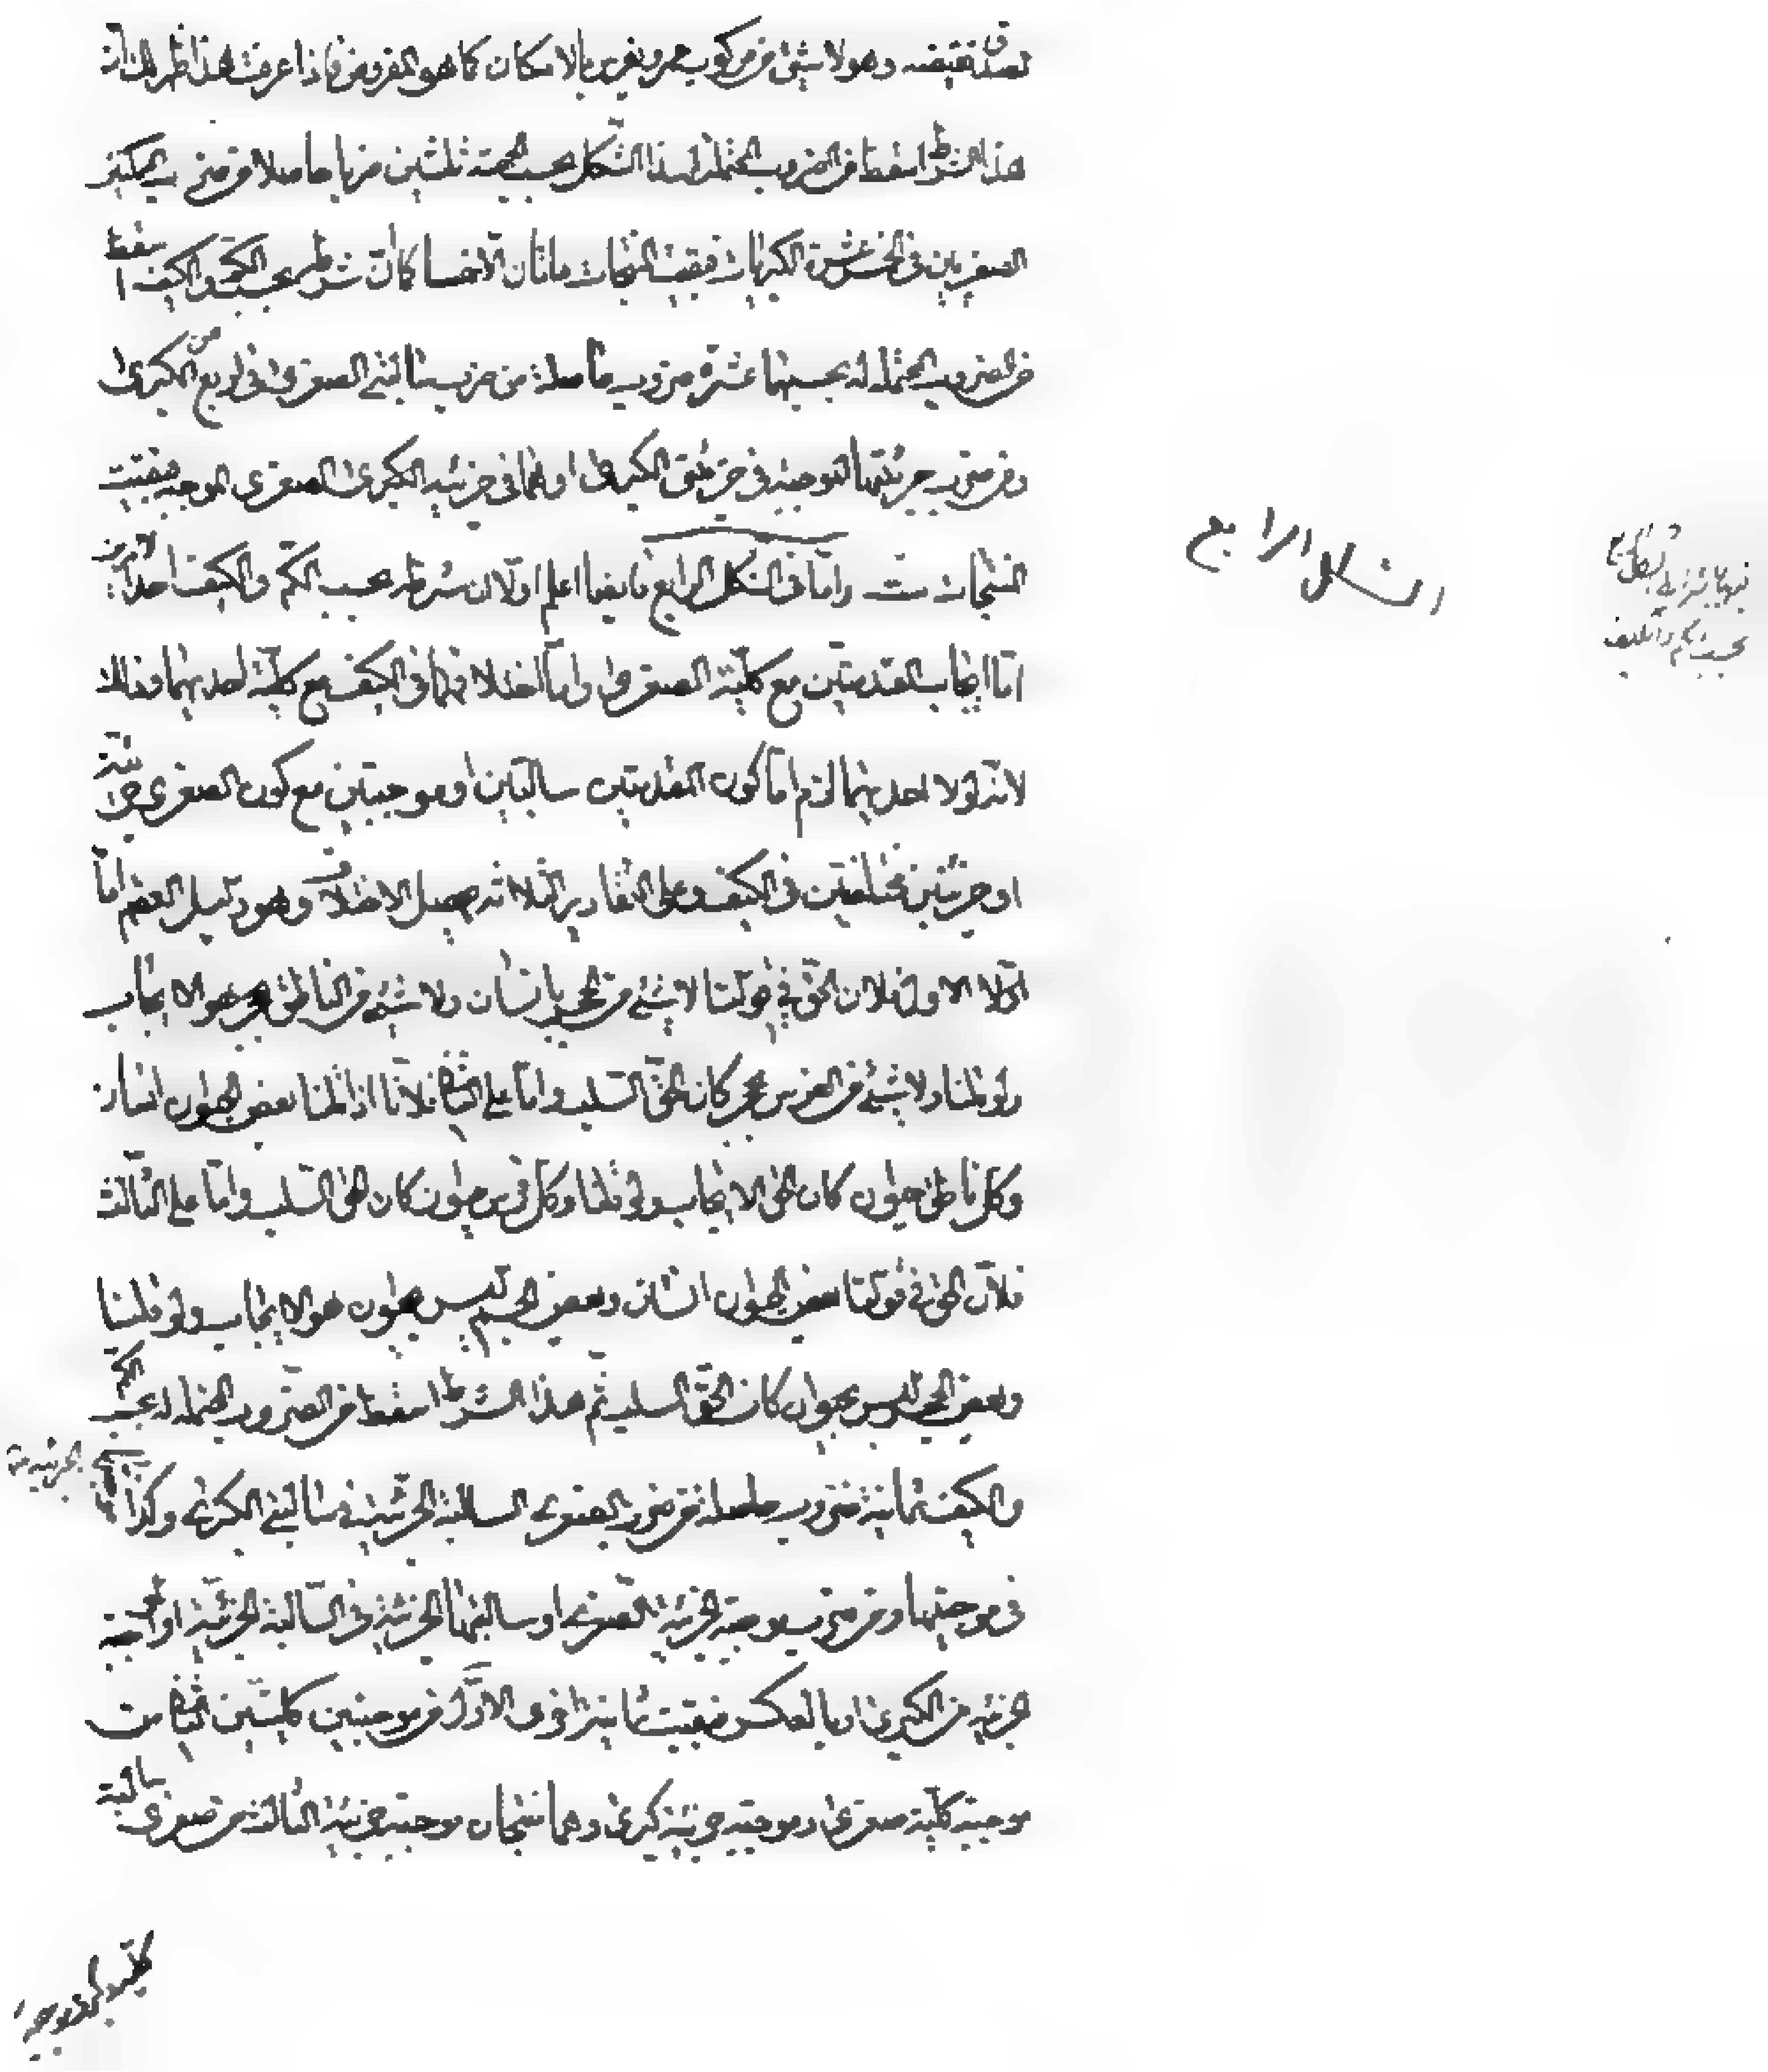 لصدق نقيضه وهو لا شئ من مركوب عمرو بفرس بالامكان كما هو المفروض فاذا عرفت هذا ظهر لك ان
هذا الشرط اسقط من الضروب المحتملة لهذا الشكل بحسب الجهة ثلثين ضربا حاصلا من ضرب
الصغريين في الخمس عشرة الكبريات فبقيت المنتجات مائتان الا خمسا كان شرطه بحسب الكم والكيف اسقط
من الضروب المحتملة له بحسبهما عشرة ضروب حاصلة من ضرب سالبتي الصغرى في اربع الكبرى
ومن ضرب جزئيتها الموجبة في جزئيتي الكبرى فبقيت
المنتجات ست واما في الشكل الرابع فايضا اعلم اولا ان شرطه بحسب الكم والكيف احد الامرين
اما ايجاب المقدمتين مع كلية الصغرى واما اختلافهما في الكيف مع كلية احديهما وذلك
لانه لولا احديهما لزم اما كون المقدمتين سالبتين او موجبتين مع كون الصغرى جزئية
او جزئيتين مختلفتين في الكيف وعلى التقادير الثلاثة يحصل الاختلاف وهو دليل العقم اما
على الاول فلان الحق في قولنا لا شئ من الحجر بانسان ولا شئ من الناطق بحجر هو الايجاب
ولو قلنا ولا شئ من الفرس بحجر كان الحق السلب واما على الثاني فلانا اذا قلنا بعض الحيوان انسان
وكل ناطق حيوان كان الحق الايجاب ولو قلنا وكل فرس حيوان كان الحق السلب واما على الثالث
فلان الحق في قولنا بعض الحيوان انسان وبعض الجسم ليس بحيوان هو الايجاب ولو قلنا
وبعض الحجر ليس بحيوان كان الحق السلب ثم هذا الشرط اسقط من الضروب المحتملة له بحسب الكم
والكيف ثمانية ضروب حاصلة من ضرب الصغرى السالبة الجزئية في سالبتي الكبرى وكذا
في موجبتها ومن ضرب موجبة الجزئية الصغرى او سالبتها الجزئية في السالبة الجزئية او الموجبة
الجزئية من الكبرى او بالعكس فبقيت ثمانية اخرى الاول من موجبتين كليتين الثاني من
موجبة كلية صغرى وموجبة جزئية كبرى وهما ينتجان موجبة جزئية الثالث من صغرى سالبة
الشكل الرابع